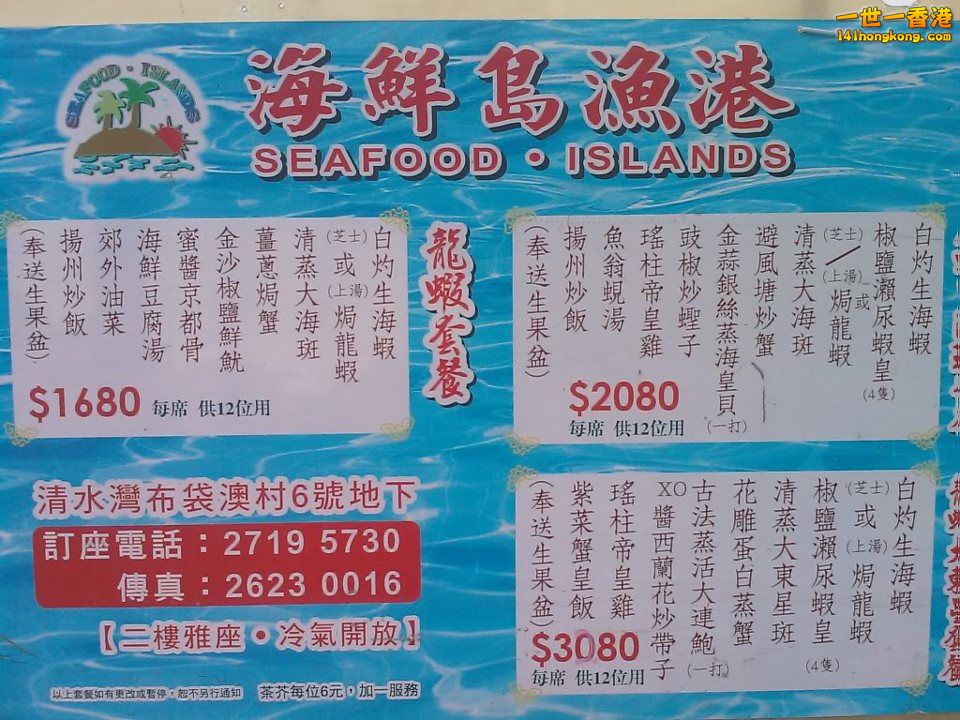 一世一香港
141hongkong.com
SEAFOOD · ISLANDS
海鮮島漁港
SEAFOOD · ISLANDS
龍蝦套餐
白灼生海蝦
(芝士)或(上湯)焗龍蝦
清蒸大海斑
薑蔥焗蟹
金沙椒鹽鮮魷
蜜醬京都骨
海鮮豆腐湯
郊外油菜
揚州炒飯
(奉送生果盆)
$1680 每席 供12位用
白灼生海蝦
椒鹽瀨尿蝦皇(4隻)
(芝士)/(上湯)或焗龍蝦
清蒸大海斑
避風塘炒蟹
金蒜銀絲蒸海皇貝(一打)
豉椒炒蟶子
瑤柱帝皇雞
魚翁蜆湯
揚州炒飯
(奉送生果盆)
$2080
每席 供12位用
白灼生海蝦
(芝士)或(上湯)焗龍蝦
椒鹽瀨尿蝦皇(4隻)
清蒸大東星斑
花雕蛋白蒸蟹
古法蒸活大連鮑(一打)
XO醬西蘭花炒帶子
瑤柱帝皇雞
紫菜蟹皇飯
(奉送生果盆)
$3080
每席 供12位用
清水灣布袋澳村6號地下
訂座電話：2719 5730
傳真：2623 0016
【二樓雅座·冷氣開放】
以上套餐如有更改或暫停，恕不另行通知
茶芥每位6元，加一服務